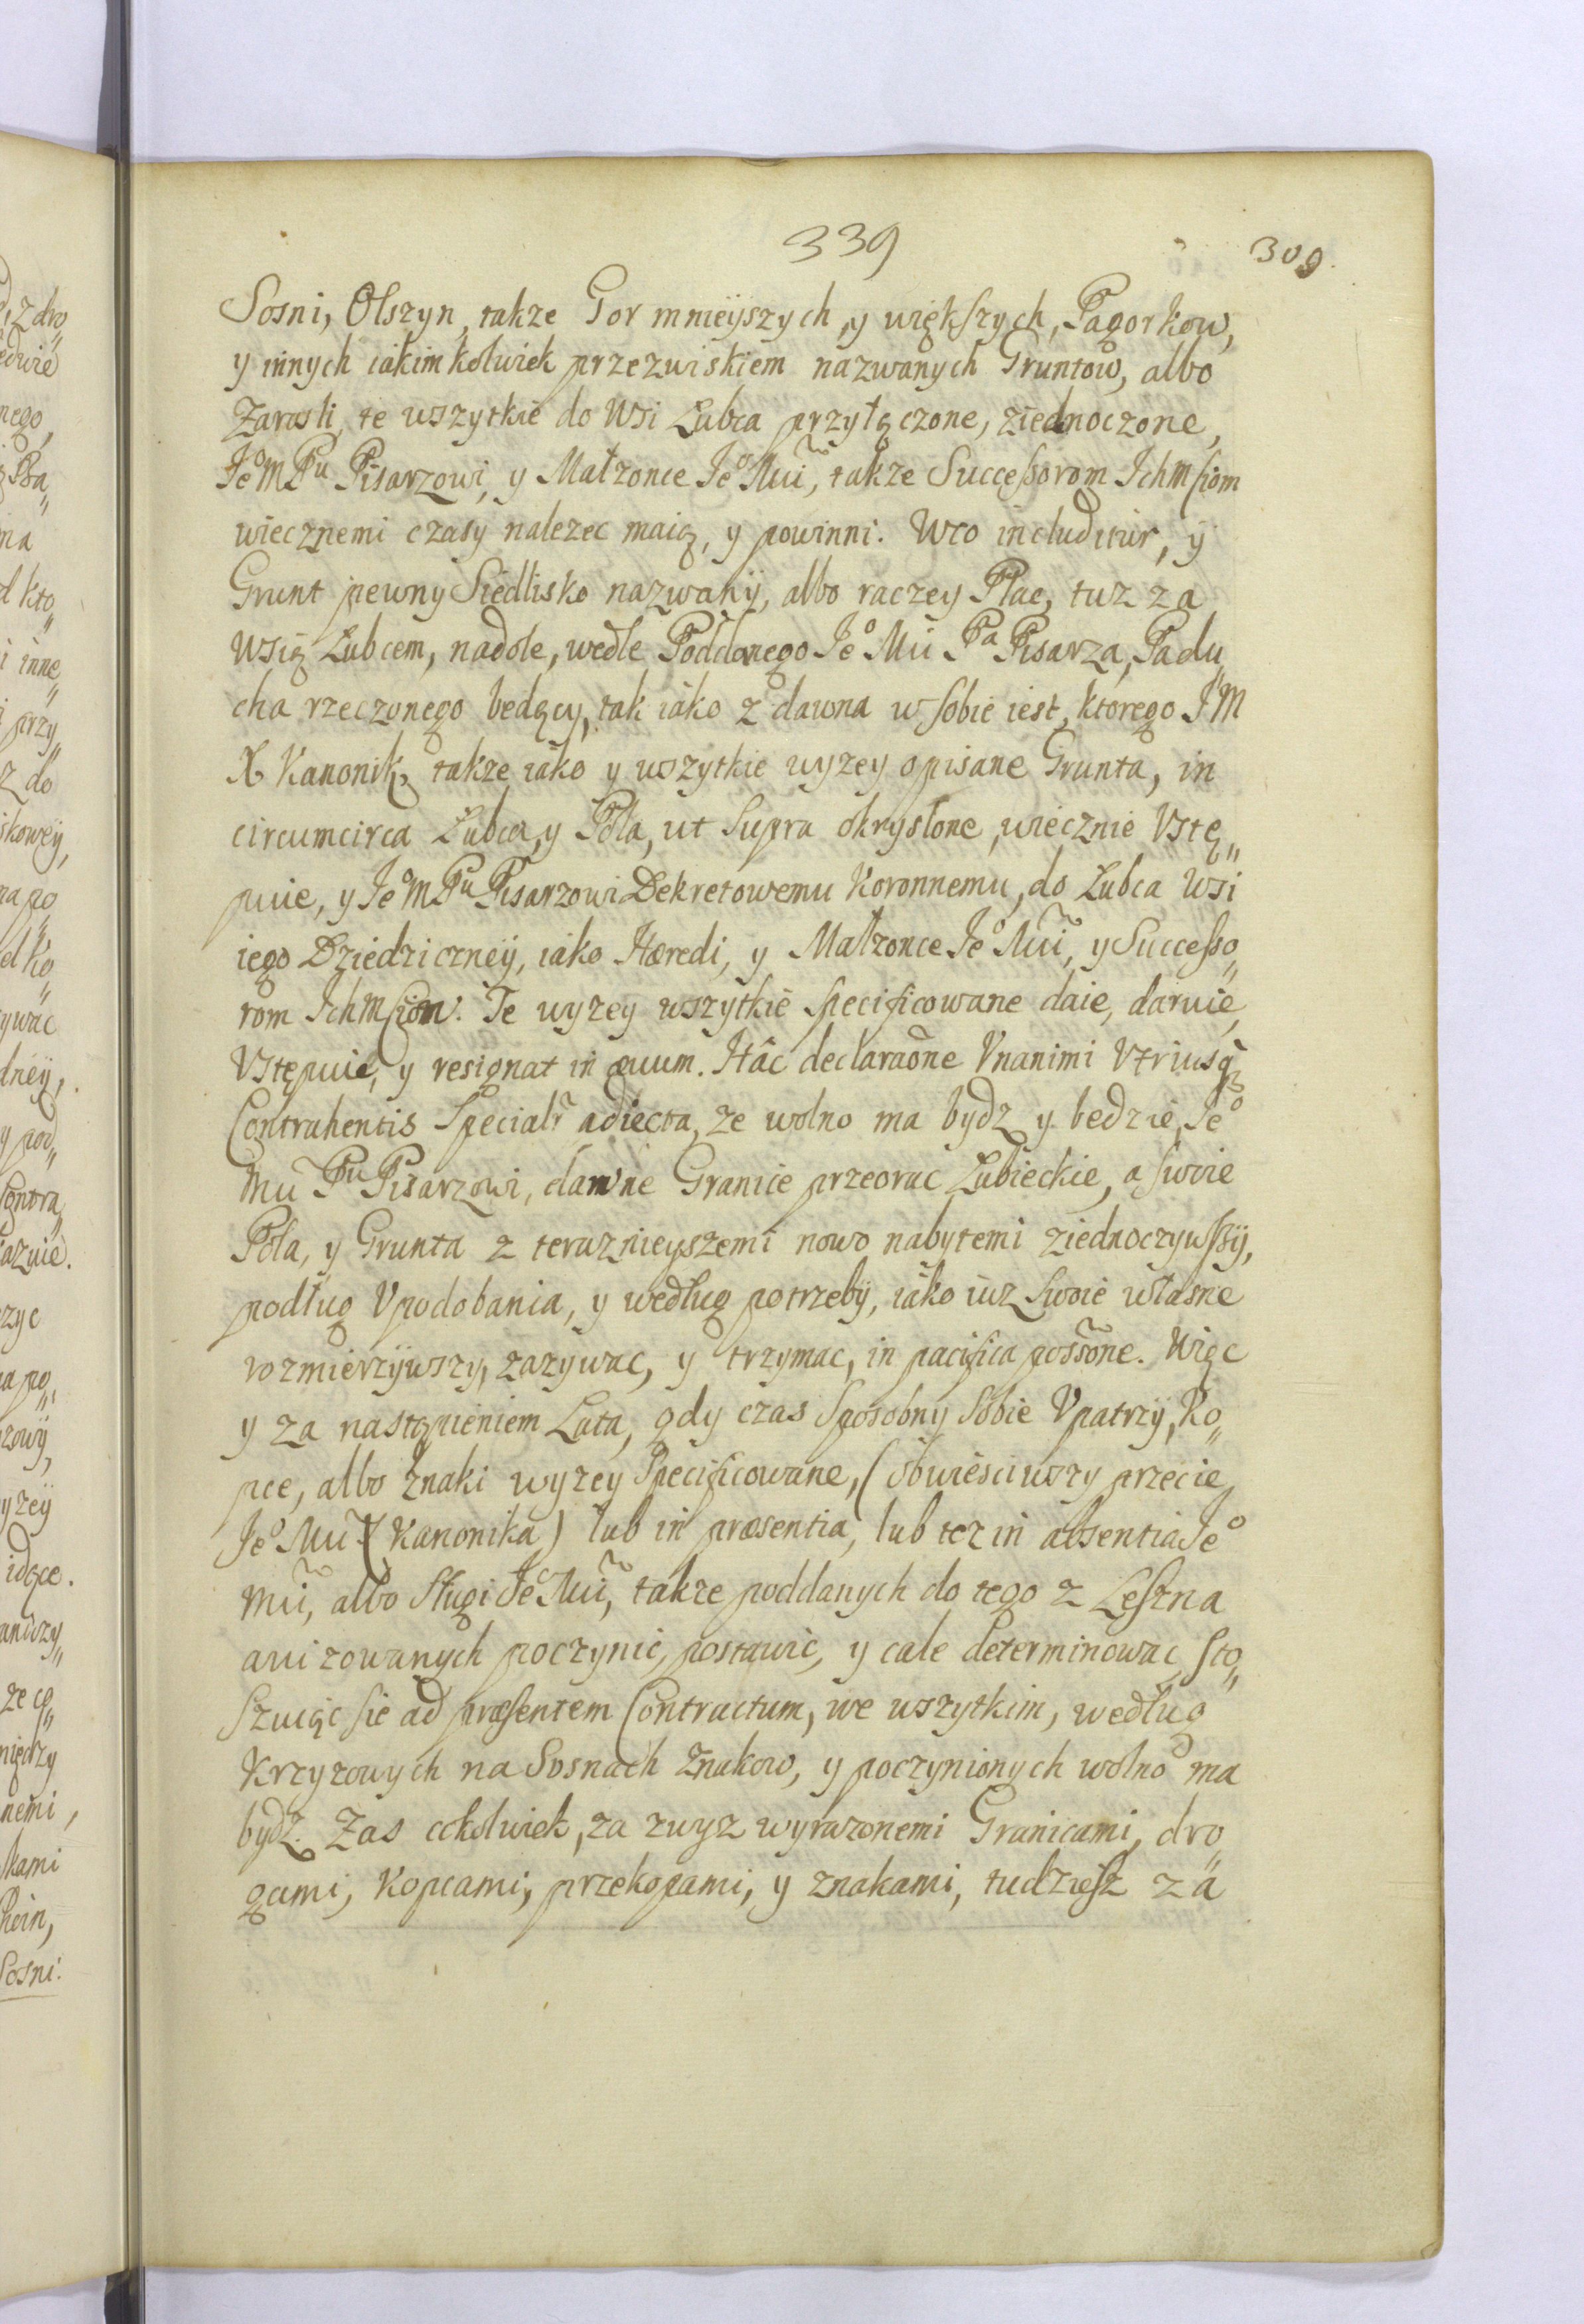 339
309.
Sosni, Olszyn, takze Gor mnieyszych, y większych, Pagorkow,
y innych iakimkolwiek przezwiskiem nazwanych Gruntow, albo
Zarosli, te wszytkie do Wsi Łubca przyłączone, ziednoczone,
Jeº M Pu Pisarzowi, y Małzonce Jeº Mci, takze Successorom Ichmsciom
wiecznemi czasy nalezec maią, y powinni. Wco includitur, y
Grunt pewny Siedlisko nazwany, albo raczey Plac, tuz za
Wsią Łubcem, nadole, wedle Poddanego Jeº Mci Pa Pisarza, Padu„
cha rzeczonego bedący, tak iako z dawna w sobie iest, ktorego JM
X Kanonik, takze iako y wszytkie wyzey opisane Grunta, in
circumcirca Łubca, y Pola, ut Supra okrysłone, wiecznie Vstę„
puie, y Jeº M Pu Pisarzowi Dekretowemu Koronnemu, do Łubca Wsi
iego Dziedziczney, iako Hæredi, y Małzonce Jeº Mci, y Successo„
rom Ichmsciom. Te wyzey wszytkie specificowane daie, daruie,
Vstępuie, y resignat in ævum. Hâc declaraõne Vnanimi Vtriusq̃
Contrahentis Specialr̃ adiecta, ze wolno ma bydz y bedzie, Jeº
Mci Pu Pisarzowi, dawne Granice przeorac Łubieckie, a swoie
Pola, y Grunta z teraznieyszemi nowo nabytemi ziednoczywszy,
podług Vpodobania, y według potrzeby, iako iuz swoie własne
rozmierzywszy, zazywac, y trzymac, in pacifica possõne. Więc
y za nastąpieniem Lata, gdy czas sposobny sobie Vpatrzy, Ko„
pce, albo znaki wyzey specificowane, (obwiesciwszy przecie
Jeº Mci X Kanonika) lub in præsentia, lub tez in absentia Jeº
Mci, albo Sługi Jeº Mci, takze poddanych do tego z Leszna
avizowanych poczynic, postawic, y cale determinowac, sto„
szuiąc sie ad præsentem Contractum, we wszytkim, według
Krzyzowych na Sosnach znakow, y poczynionych wolno ma
bydz. Zas cokolwiek, za zwyz wyrazonemi Granicami, dro„
gami, Kopcami, przekopami, y znakami, tudziesz za